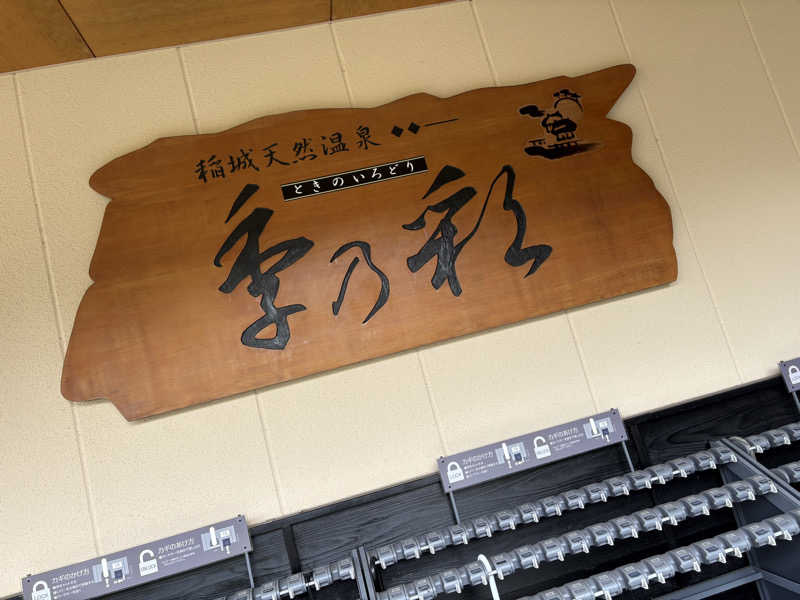 稲城天然温泉
ときのいろどり
季乃彩
カギのかけ方
カギのあけ方
カギのかけ方
カギのあけ方